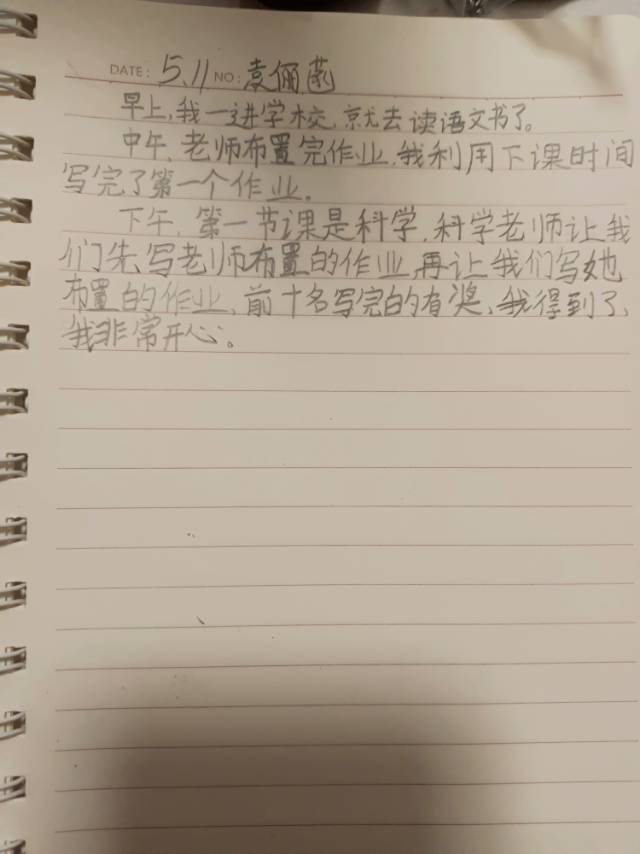 DATE: 5.11 NO: 袁俪
早上,我一进学校,就去读语文书了。
中午,老师布置完作业,我利用下课时间
写完了第一个作业。
下午,第一节课是科学,科学老师让我
们先写老师布置的作业,再让我们写她
布置的作业,前十名写完的有奖,我得到了,
我非常开心。